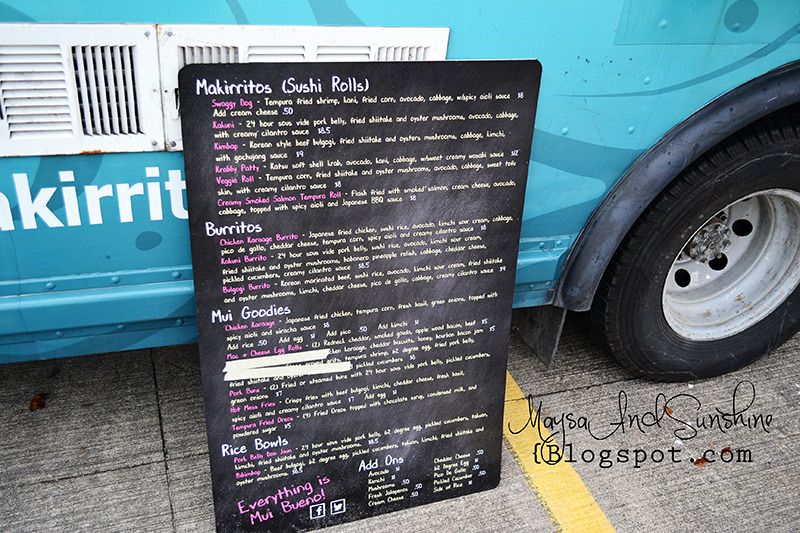 akirrit
Makirritos (Sushi Rolls)
Swaggy Dog - Tempura fried shrimp, kani, fried corn, avocado, cabbage, w/spicy aioli sauce $8
Add cream cheese .50
Kakuni - 24 hour sous vide pork belly, fried shiitake and oyster mushrooms, avocado, cabbage,
with creamy cilantro sauce $8.5
Kimbap - Korean style beef bulgogi, fried shiitake and oysters mushrooms, cabbage, kimchi,
with gochujang sauce $9
Krabby Patty - Katsu soft shell krab, avocado, kani, cabbage, w/sweet creamy wasabi sauce $12
Veggie Roll - Tempura corn, fried shiitake and oyster mushrooms, avocado, cabbage, sweet tofu
skin, with creamy cilantro sauce $8
Creamy Smoked Salmon Tempura Roll - Flash fried with smoked salmon, cream cheese, avocado,
cabbage, topped with spicy aioli and Japanese BBQ sauce $8
Burritos
Chicken Karaage Burrito - Japanese fried chicken, sushi rice, avocado, kimchi sour cream, cabbage,
pico de gallo, cheddar cheese, tempura corn, spicy aioli and creamy cilantro sauce $8
Kakuni Burrito - 24 hour sous vide pork belly, sushi rice, avocado, kimchi sour cream,
fried shiitake and oyster mushrooms, habanero pineapple relish, cabbage, cheddar cheese,
pickled cucumbers, creamy cilantro sauce $8.5
Bulgogi Burrito - Korean marinated beef, sushi rice, avocado, kimchi sour cream, fried shiitake
and oyster mushrooms, kimchi, cheddar cheese, pico de gallo, cabbage, creamy cilantro sauce $9
Mui Goodies
Chicken Karaage - Japanese fried chicken, tempura corn, fresh basil, green onions, topped with
spicy aioli and sriracha sauce $8
Add rice .50 Add egg $1 Add pico .50 Add kimchi $1
Mac + Cheese Egg Rolls - (2) Redneck cheddar, smoked gouda, apple wood bacon, beef $5
chicken karaage, cheddar biscuits, honey bourbon bacon jam $5
grits, tempura shrimp, 62 degree egg, fried pork belly,
fried shiitake and oyster mushrooms, pickled cucumbers $8
Pork Buns - (2) Fried or steamed buns with 24 hour sous vide pork belly, pickled cucumbers,
green onions $7
Hot Mess Fries - Crispy fries with beef bulgogi, kimchi, cheddar cheese, fresh basil,
spicy aioli and creamy cilantro sauce $7 Add egg $1
Tempura Fried Oreos - (4) Fried Oreos topped with chocolate syrup, condensed milk, and
powdered sugar $5
Rice Bowls
Pork Belly Don Jaun - 24 hour sous vide pork belly, 62 degree egg, pickled cucumbers, takuan,
kimchi, fried shiitake and oyster mushrooms. $8.5
Bibimbap - Beef bulgogi, 62 degree egg, pickled cucumbers, takuan, kimchi, fried shiitake and
oyster mushrooms. $8.5
Everything is
Mui Bueno!
Add Ons
Avocado $1
Kimchi $1
Mushrooms .50
Fresh Jalapenis .50
Cream Cheese .50
Cheddar Cheese .50
62 Degree Egg $1
Pico De Gallo .50
Pickled Cucumber .50
Side of Rice $1
MaysaIndSunshine
{Blogspot.com}